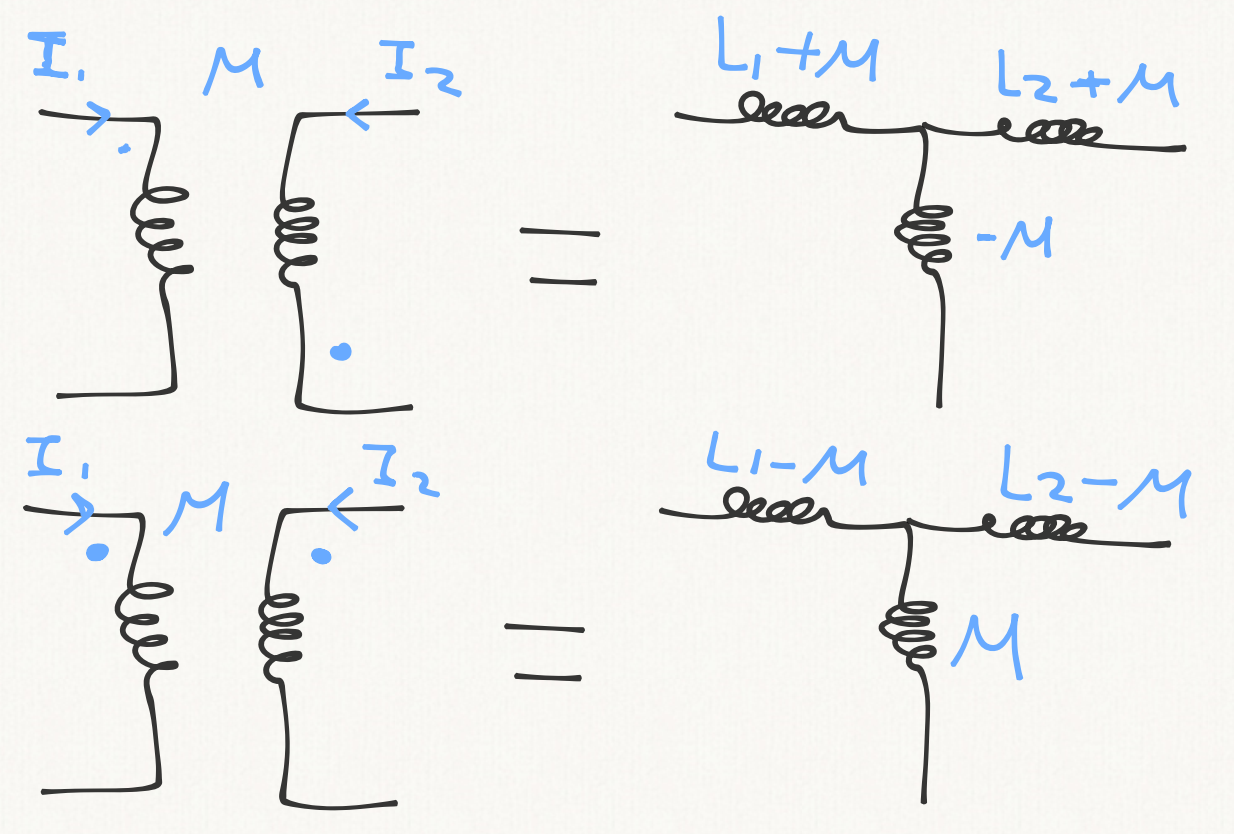 I₁ M I₂ L₁+M L₂+M
=
-M
I₁ M I₂ L₁-M L₂-M
=
M